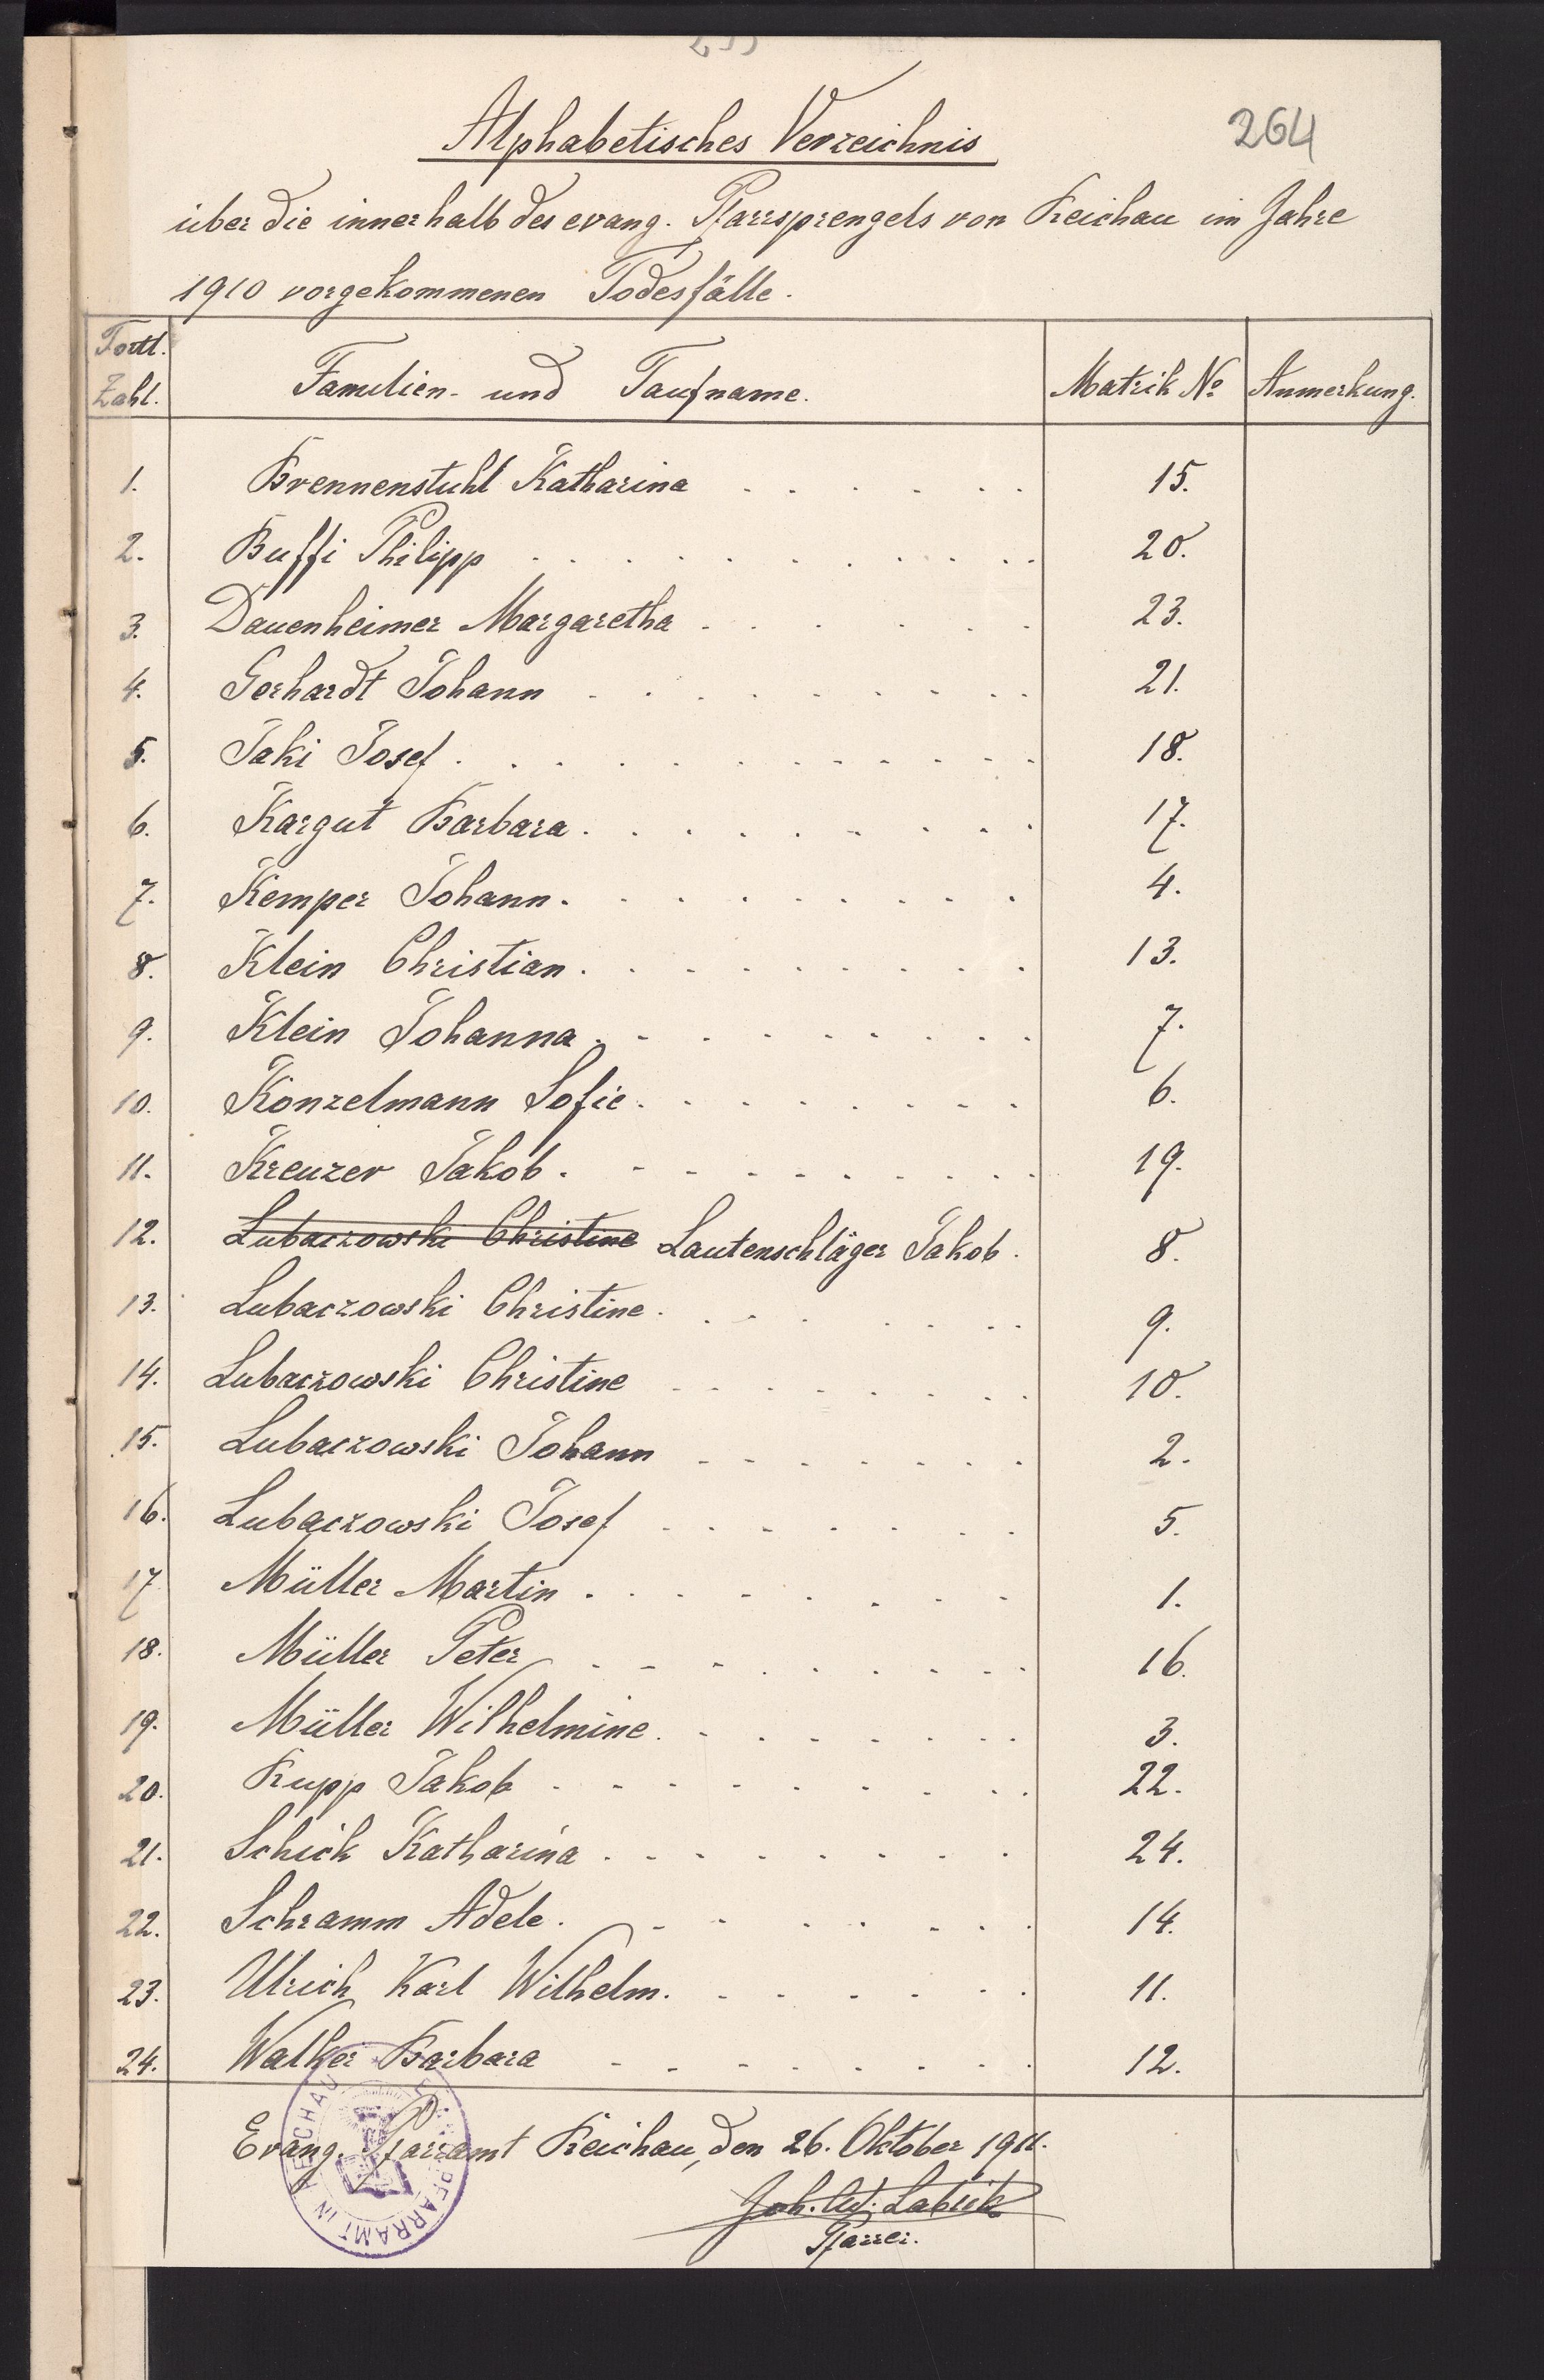 264
Alphabetisches Verzeichnis
über die innerhalb des evang. Pfarrsprengels von Reichau im Jahre
1910 vorgekommenen Todesfälle.
Fortl. Zahl. Familien- und Taufname. Matrik No Anmerkung.
1. Brennenstuhl Katharina 15.
2. Buffi Philipp 20.
3. Dauenheimer Margaretha 23.
4. Gerhardt Johann 21.
5. Jaki Josef 18.
6. Kargut Barbara 17.
7. Kemper Johann 4.
8. Klein Christian 13.
9. Klein Johanna 7.
10. Konzelmann Sofie 6.
11. Kreuzer Jakob 19.
12. Lubaczowski Christine Lautenschläger Jakob. 8.
13. Lubaczowski Christine 9.
14. Lubaczowski Christine 10.
15. Lubaczowski Johann 2.
16. Lubaczowski Josef 5.
17 Müller Martin 1.
18. Müller Peter 16.
19. Müller Wilhelmine 3.
20. Rupp Jakob 22.
21. Schick Katharina 24.
22. Schramm Adele 14.
23. Ulrich Karl Wilhelm 11.
24. Walker Barbara 12.
Evang. Pfarramt Reichau, den 26. Oktober 1911.
Joh.
Pfarrer.
PFARRAMT IN REICHAU